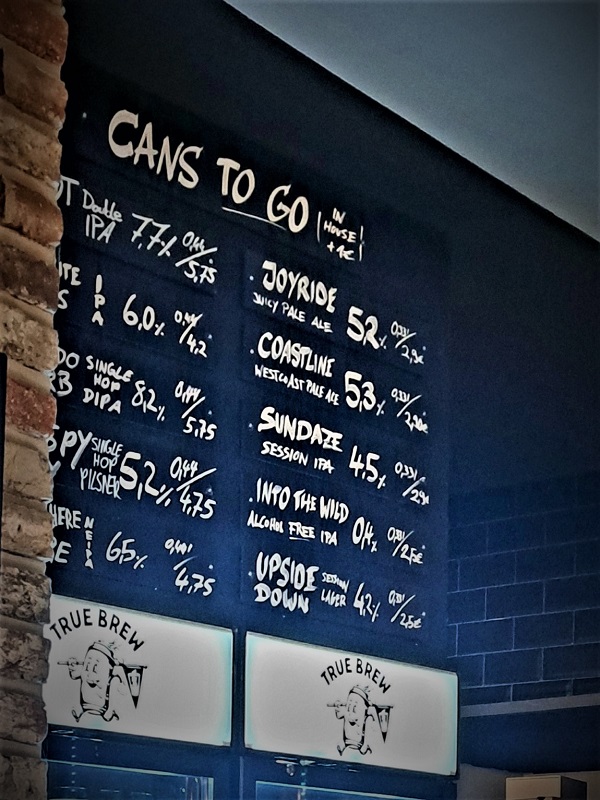 CANS TO GO
IN
HOUSE
+1€
Double
IPA
7,7%
0,44l/
5,75
IPA
6,0%
0,44l/
4,2
SINGLE
HOP
DIPA
8,2%
0,44l/
5,75
SINGLE
HOP
PILSNER
5,2%
0,44l/
4,75
NEIPA
6,5%
0,44l/
4,75
JOYRIDE
JUICY PALE ALE
52%
0,33l/
2,9€
COASTLINE
WEST COAST PALE ALE
5,3%
0,33l/
2,90€
SUNDAZE
SESSION IPA
4,5%
0,33l/
2,9€
INTO THE WILD
ALCOHOL FREE IPA
0,4%
0,33l/
2,5€
UPSIDE
DOWN
SESSION
LAGER
4,2%
0,33l/
2,5€
TRUE BREW
TRUE BREW